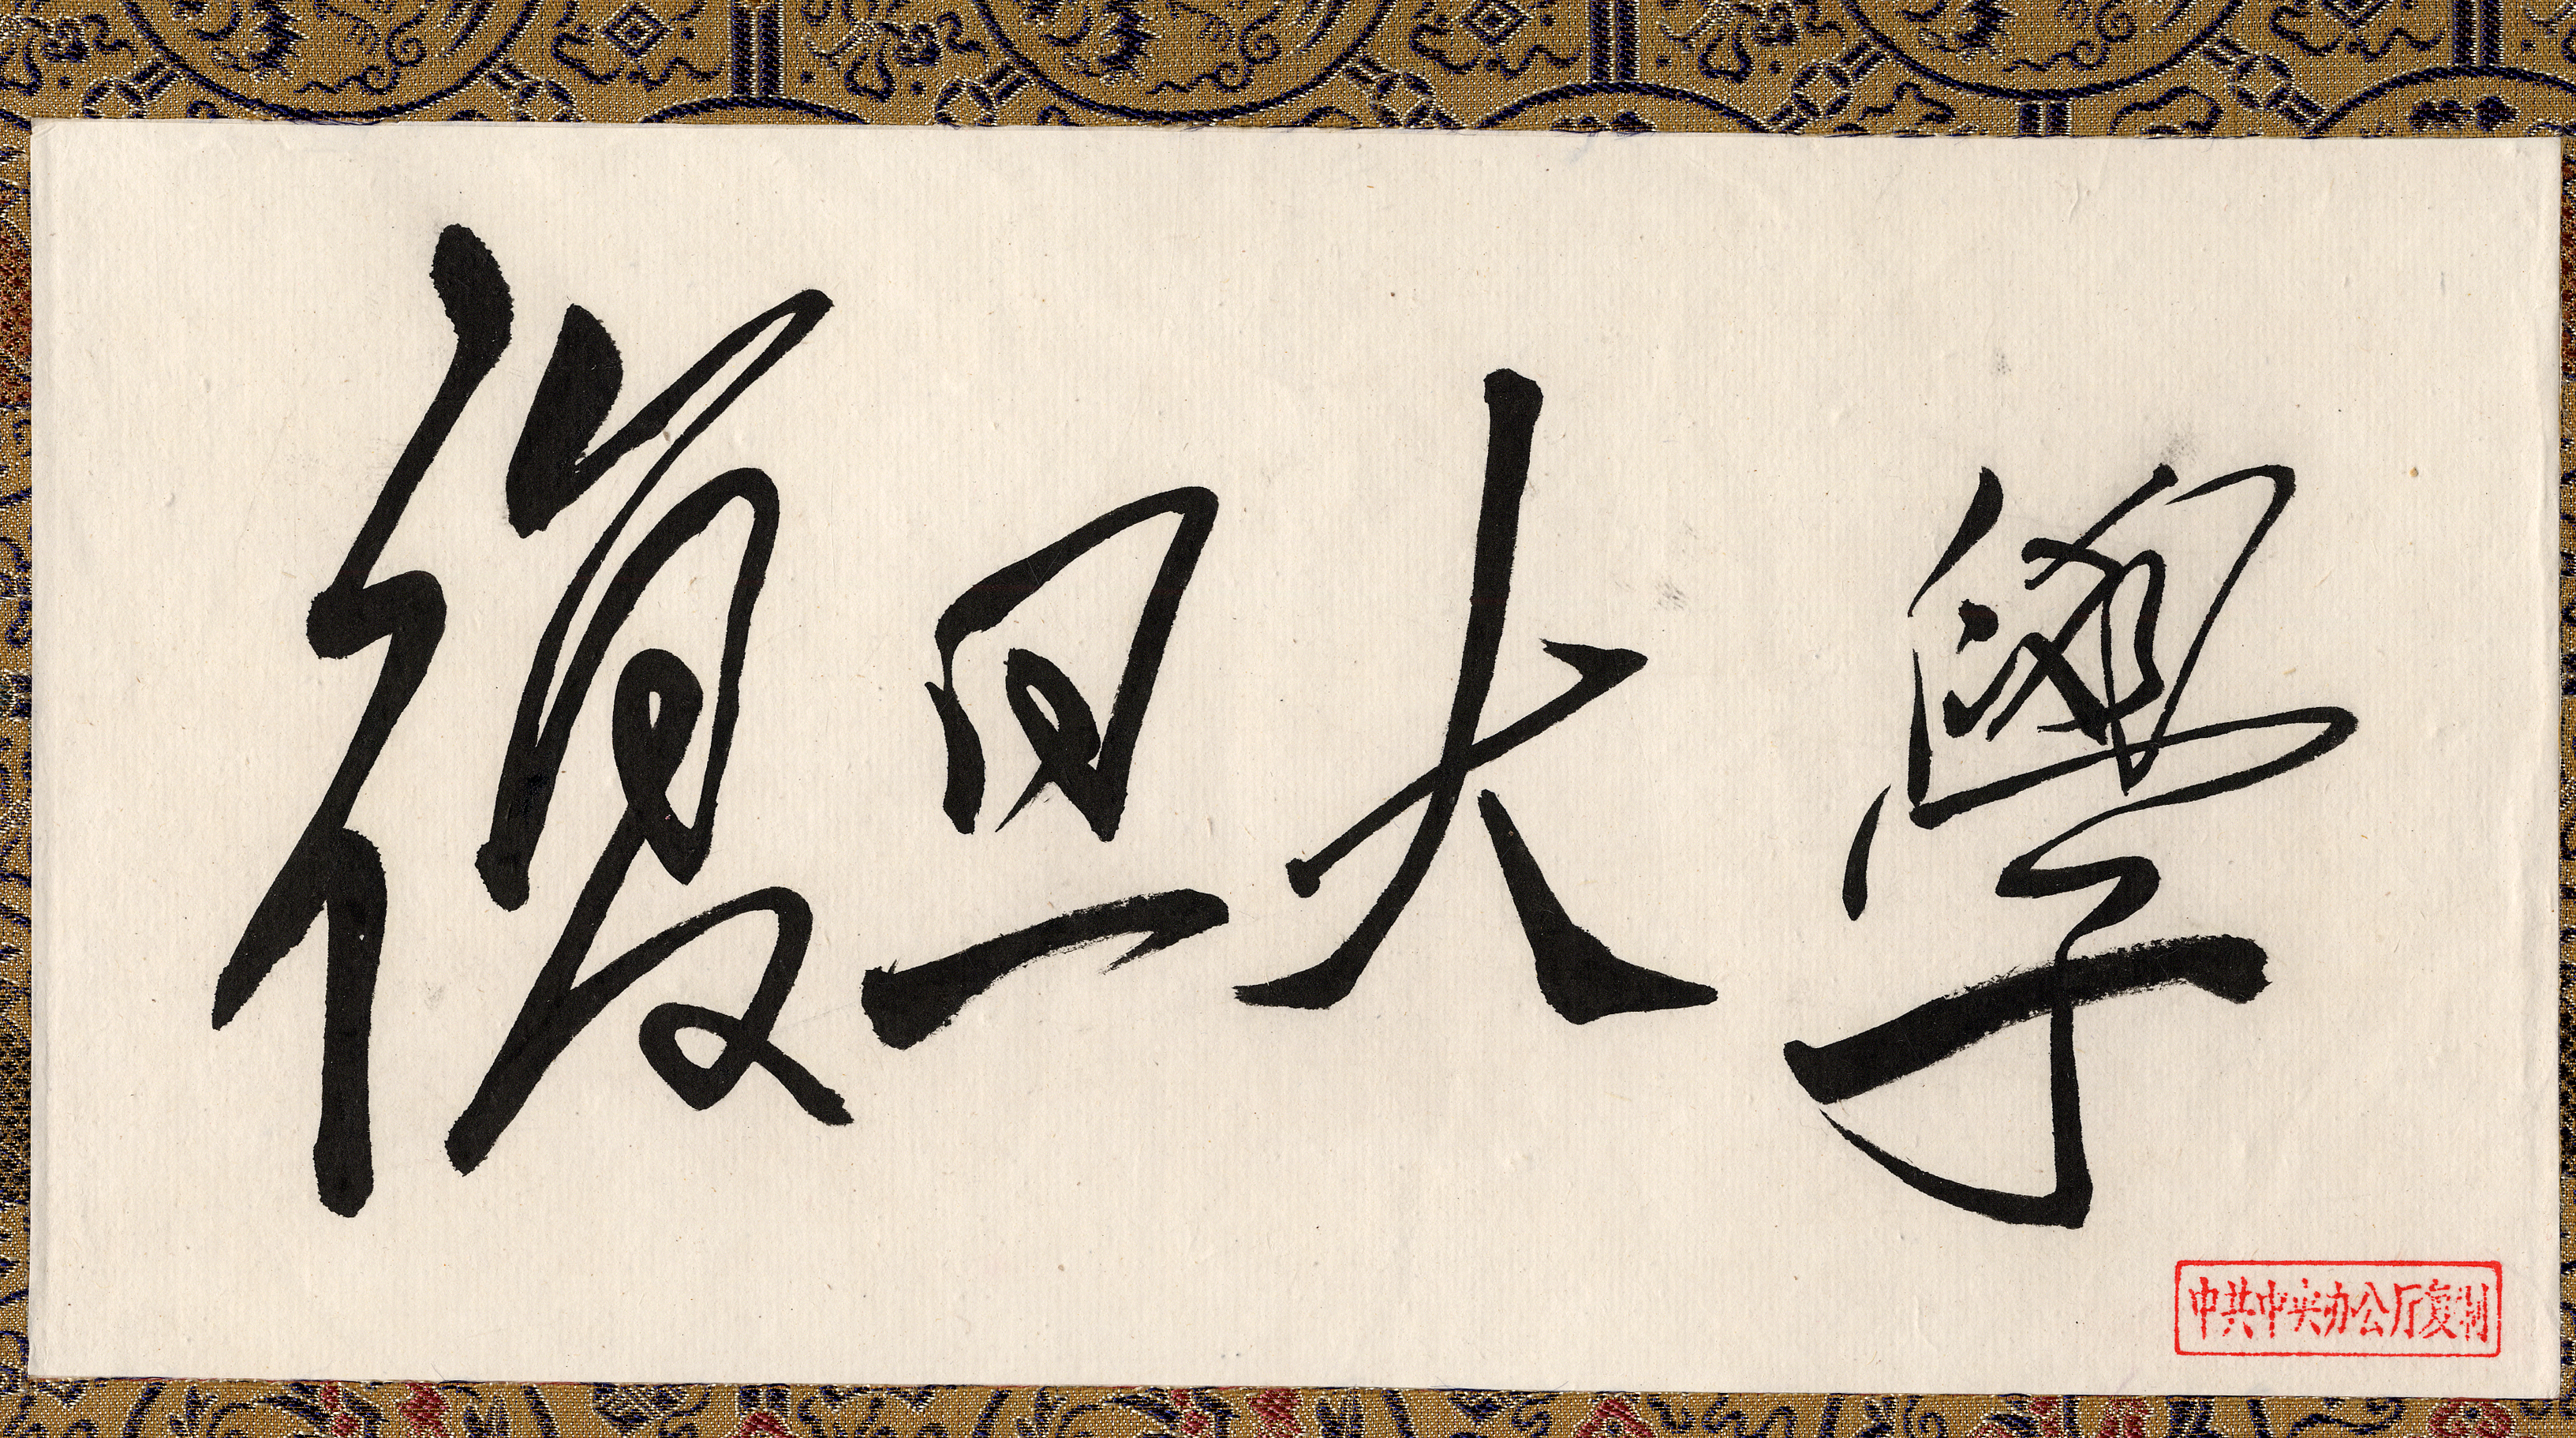 復旦大學
中共中央办公厅复制